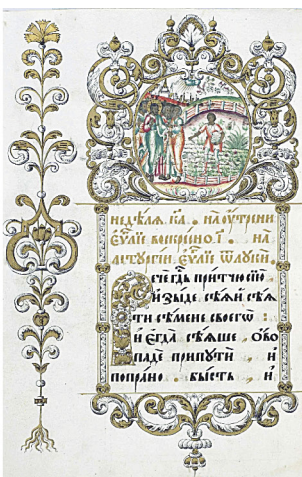 недѣлѧ, к҃а. на ѹтрени
еѵⷢ҇лїе воскр҇но, і҃. на
литѹргїи еѵⷢ҇лїе ѿ лѹки
Рече гⷭ҇дь притчю сїю
изыде сѣѧи сѣѧ
ти сѣмене своегѡ
и егда сѣѧше, ово
паде при пути и
попрано бысть и